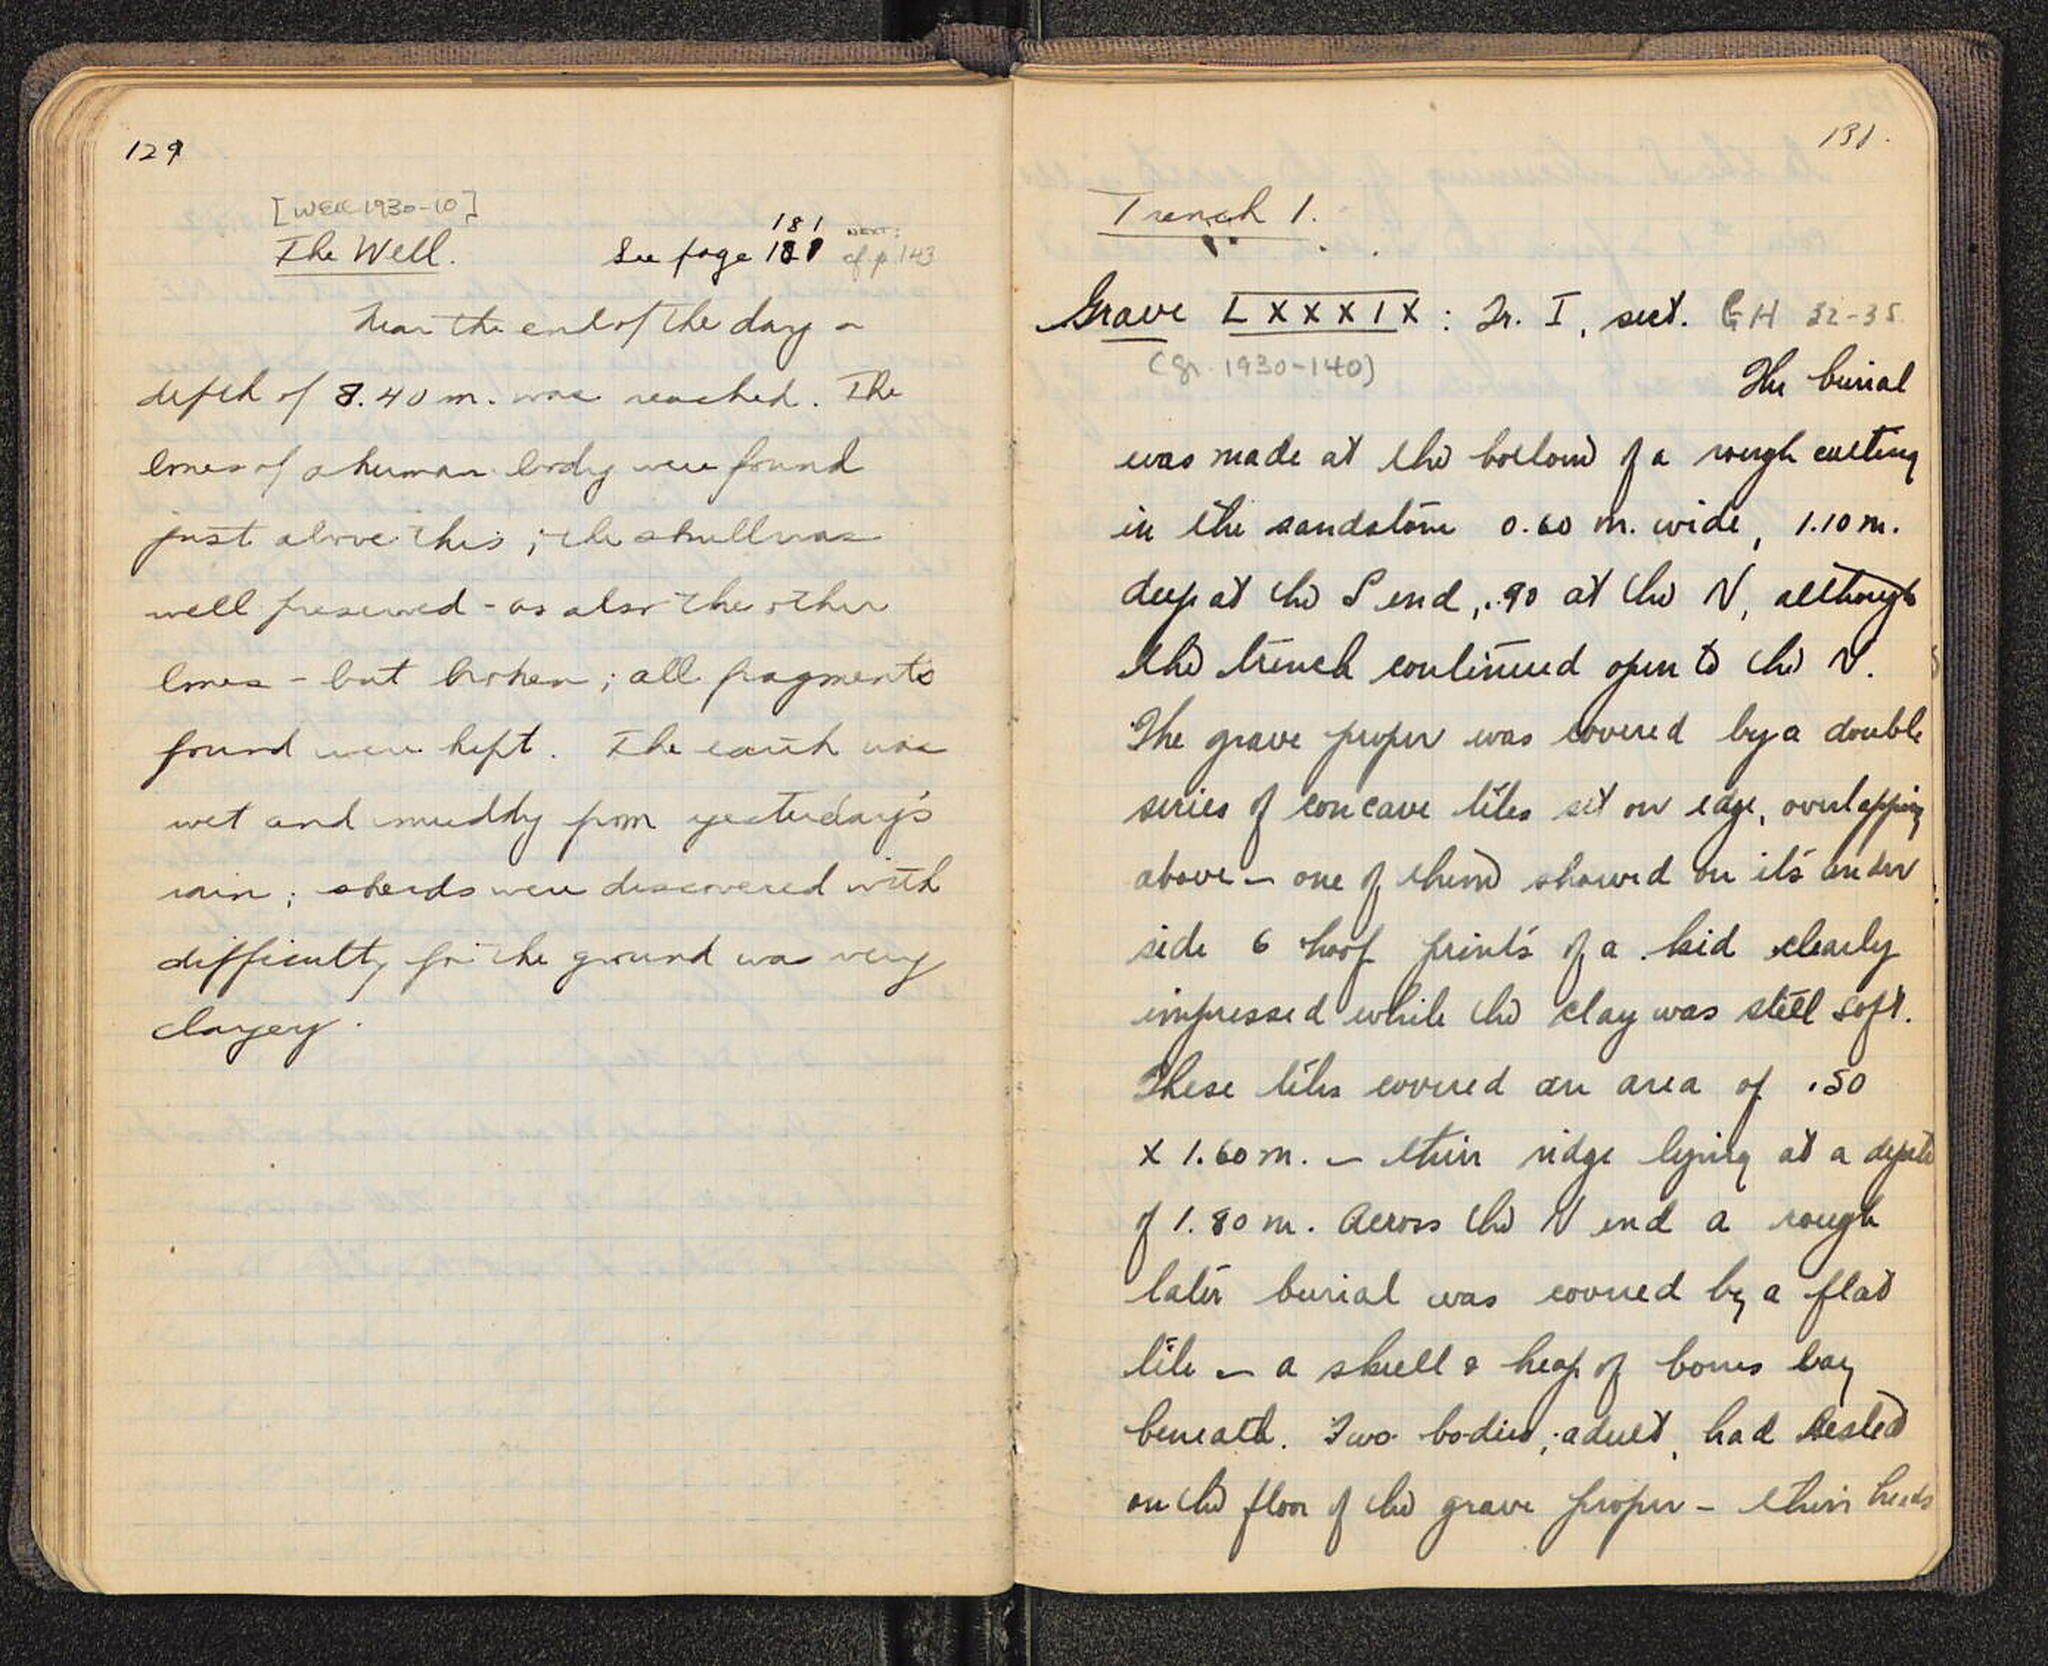 129
[WELL 1930-10]
181
NEXT:
The Well. See page 181 cf p. 143
Near the end of the day a
depth of 8.40 m. was reached. The
bones of a human body were found
just above this; the skull was
well preserved - as also the other
bones - but broken; all fragments
found were kept. The earth was
wet and muddy from yesterday's
rain; sherds were discovered with
difficulty for the ground was very
clayey.
131.
Trench 1.
Grave LXXXIX: Tr. I, sect. GH 32-35
(Gr. 1930-140)
The burial
was made at the bottom of a rough cutting
in the sandstone 0.60 m. wide, 1.10 m.
deep at the S end, .90 at the N, although
the trench continued open to the N.
The grave proper was covered by a double
series of concave tiles set on edge, overlapping
above - one of them showed on its under
side 6 hoof prints of a kid clearly
impressed while the clay was still soft.
These tiles covered an area of .50
x 1.60 m. - their ridge lying at a depth
of 1.80 m. Across the N end a rough
later burial was covered by a flat
tile - a skull & heap of bones lay
beneath. Two bodies, adult, had rested
on the floor of the grave proper - their heads